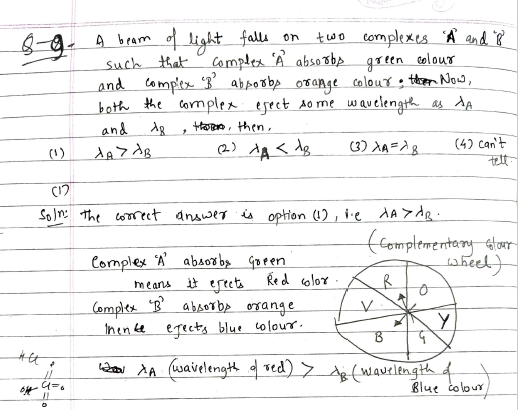 Q-9. A beam of light falls on two complexes 'A' and 'B'
such that complex 'A' absorbs green colour
and complex 'B' absorbs orange colour. Now,
both the complex eject some wavelength as λA
and λB, then,
(1) λA > λB (2) λA < λB (3) λA = λB (4) can't tell.
(1)
Soln: The correct answer is option (1), i.e λA > λB.
(Complementary colour wheel)
Complex 'A' absorbs Green
means it ejects Red color.
Complex 'B' absorbs orange
hence ejects blue colour.
R O
V Y
B G
λA (wavelength of red) > λB (wavelength of Blue colour)